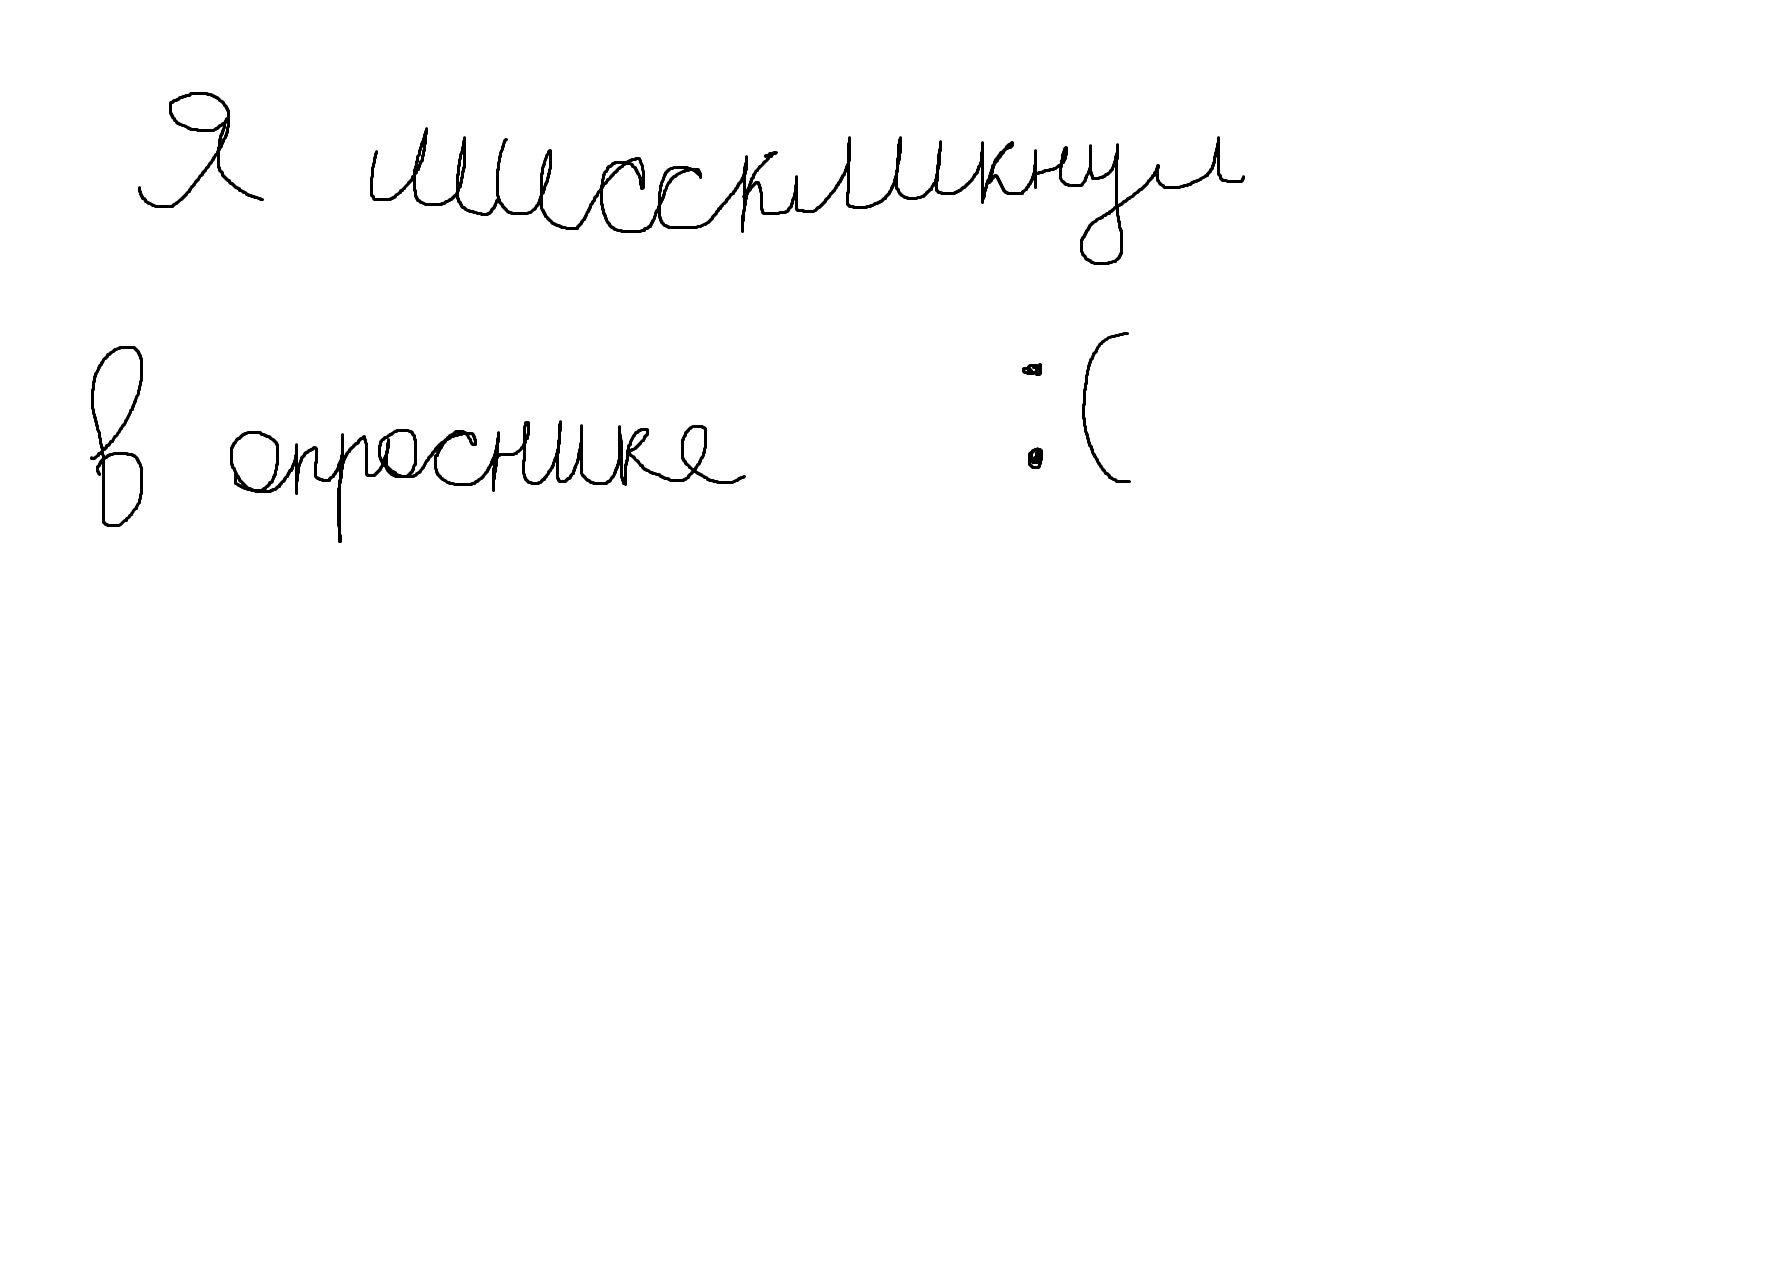 Я мисскликнул
в опроснике :(